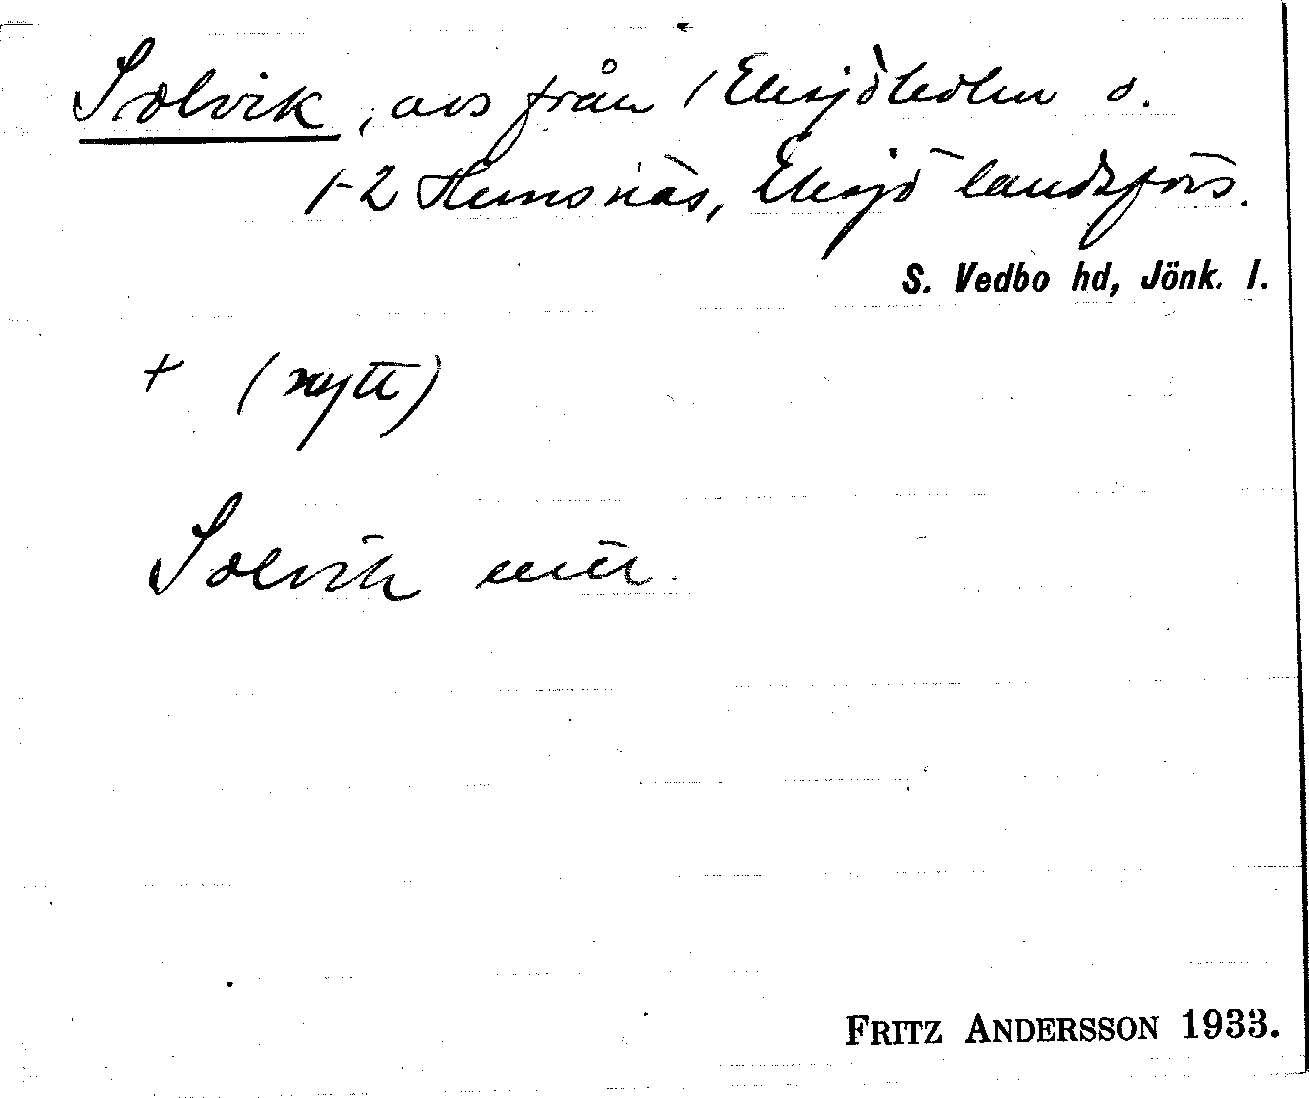 Solvik, avs från 1 Eksjöholm o.
1-2 Humsnäs, Eksjö landsförs.
S. Vedbo hd, Jönk. l.
+ (nytt)
Solvik
FRITZ ANDERSSON 1933.